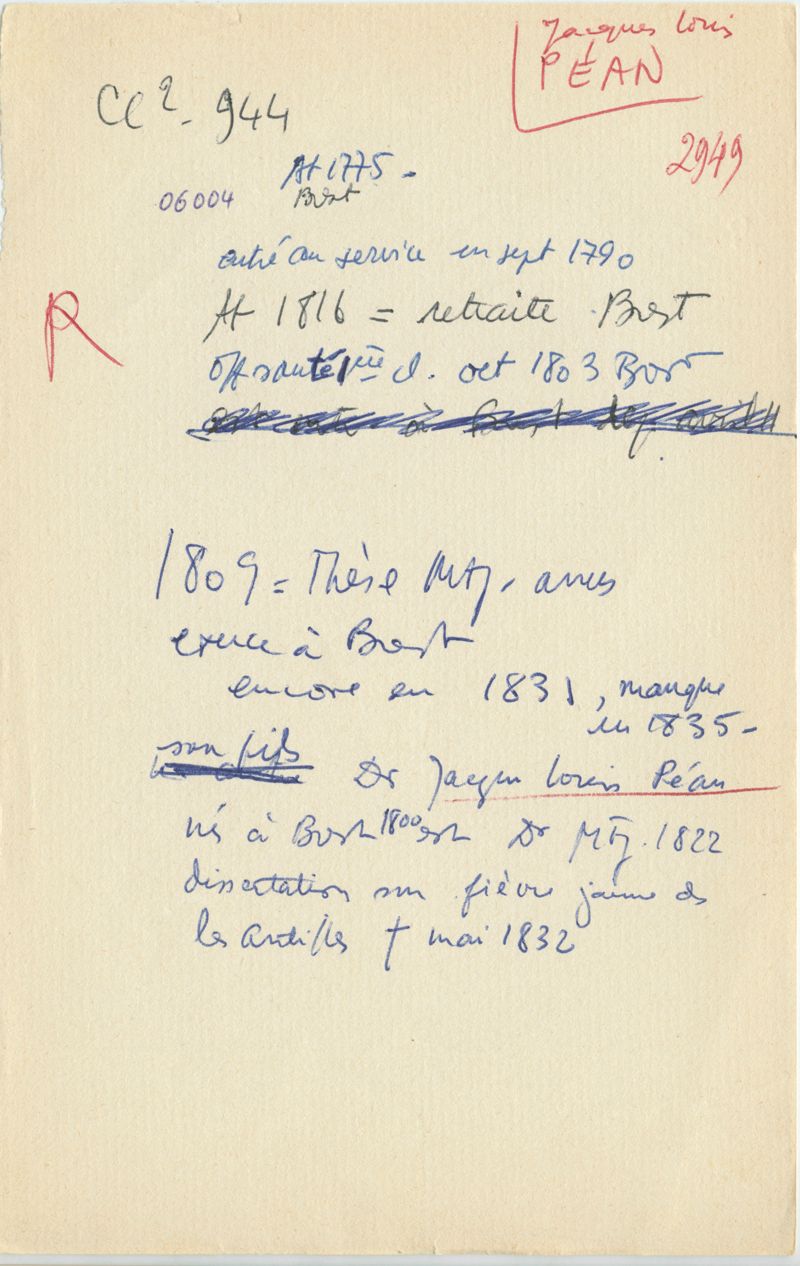 Jacques Louis
PÉAN
CC² - 944
2949
At 1775 -
06004 Brest
entré au service en sept 1790
R
At 1816 = retraite. Brest
Off santé 1ère cl. oct 1803 Brest
1809 = Thèse Mtp.
exerce à Brest
encore en 1831, manque
en 1835 -
son fils
Dr Jacques Louis Péan
né à Brest 1800 est Dr Mtp. 1822
dissertation sur fièvre jaune ds
les Antilles † mai 1832